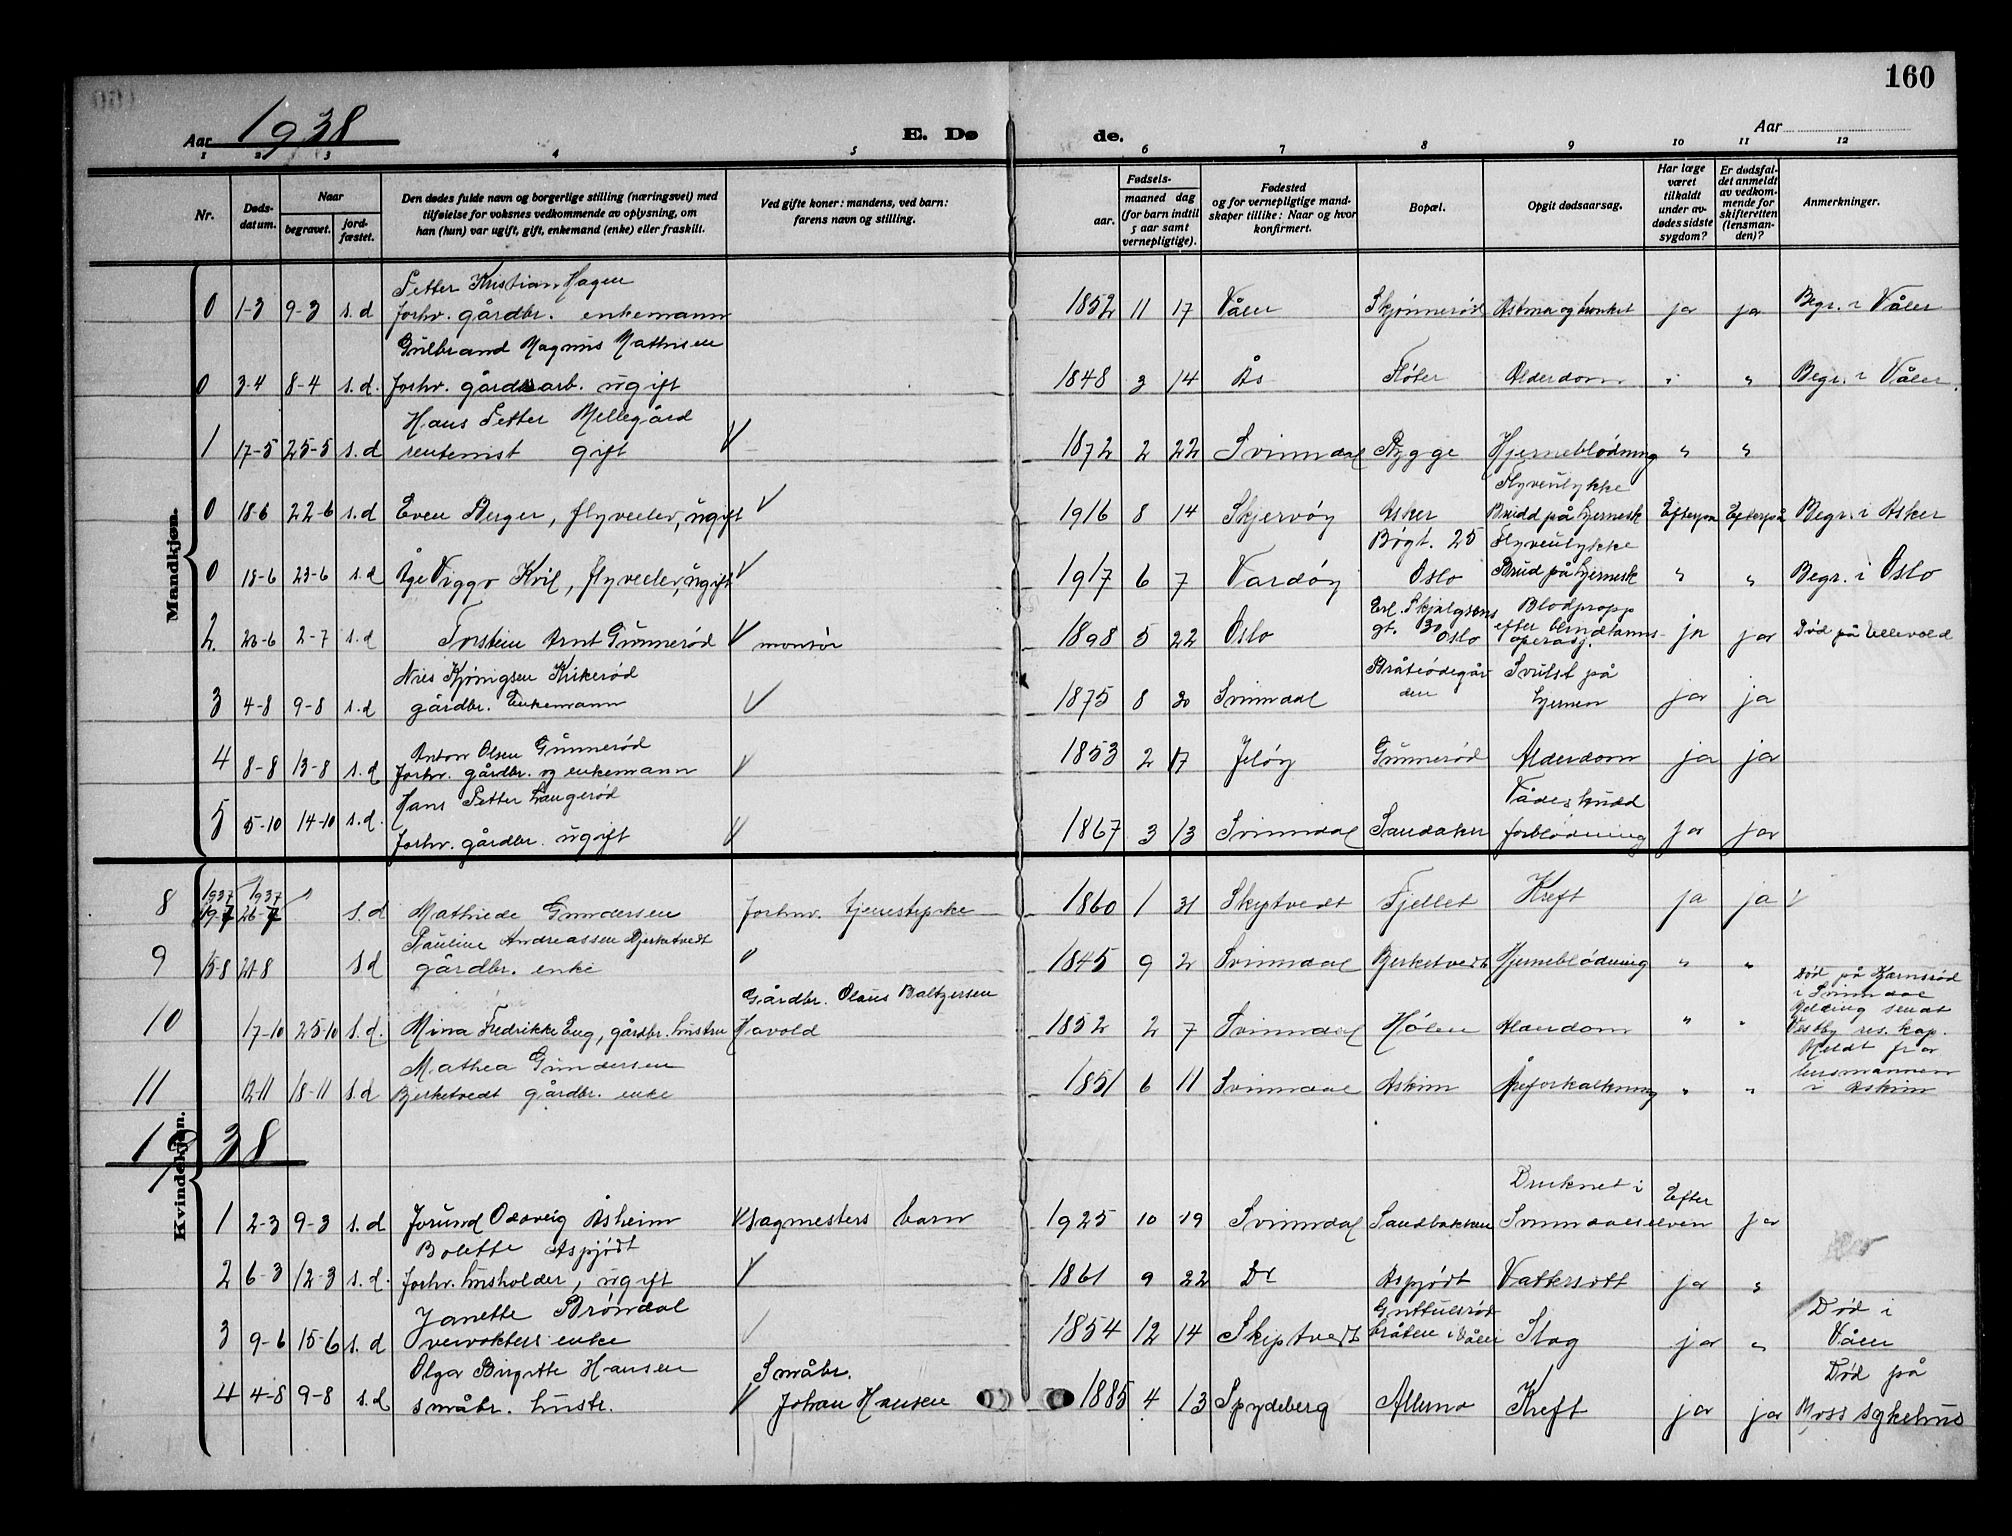 160
Aar 1938 E. Dø de. Aar
1 2 3 4 5 6 7 8 9 10 11 12
Nr. Døds-datum. Naar begravet. jord-fæstet. Den dødes fulde navn og borgerlige stilling (næringsvei) med tilføielse for voksnes vedkommende av oplysning, om han (hun) var ugift, gift, enkemand (enke) eller fraskilt. Ved gifte koner: mandens, ved barn: farens navn og stilling. Fødsels- aar. maaned dag (for barn indtil 5 aar samt vernepligtige). Fødested og for vernepligtige mand-skaper tillike: Naar og hvor konfirmert. Bopæl. Opgit dødsaarsag. Har læge været tilkaldt under av-dødes sidste sygdom? Er dødsfal-det anmeldt av vedkom-mende for skifteretten (lensman-den)? Anmerkninger.
Mandkjøn.
Petter Kristian Hagen
0 1-3 9-3 s.d forhv. gårdbr. enkemann 1852 11 17 Våler Skjønnerød Astma og bronkit ja ja Begr. i Våler
Gulbrand Magnus Mathisen
0 3-4 8-4 s.d. forhv. gårdsarb. ugift 1848 3 14 Ås Fløter Alderdom " " Begr. i Våler.
Hans Petter Mellegård
1 17-5 25-5 s.d rentenist gift 1872 2 22 Svinndal Rygge Hjerneblødning " "
Flyveulykke
0 18-6 22-6 s.d Even Berger, flyveelev, ugift 1916 8 14 Skjervøy Asker Brudd på hjernesk Efterpå Efterpå Begr. i Asker
Bogt. 25 Flyveulykke
0 18-6 23-6 s.d Åge Viggo Kvil, flyveelev, ugift 1917 6 7 Vardøy Oslo Brud på hjernesk " " Begr. i Oslo
Erl. Skjalgsens Blodpropp
2. 23-6 2-7 s.d Torstein Arnt Gunnerød montør 1898 5 22 Oslo gt. 30 Oslo efter blindtarms-operasj. ja ja Død på Ullevold
Nils Kjønigsen Kirkerød Bråterødegår- Svulst på
3 4-8 9-8 s.d gårdbr. Enkemann 1875 8 30 Svinndal den hjernen ja ja
Anton Olsen Gunnerød
4 8-8 13-8 s.d forhv. gårdbr. og enkemann 1853 2 17 Jeløy Gunnerød Alderdom ja ja
Hans Petter Haugerød Vådeskudd
5 5-10 14-10 s.d. forhv. gårdbr. ugift 1867 3 13 Svinndal Sandaker forblødning ja ja
Kvindekjøn.
1937 1937
8 19-7 26-7 s.d Mathilde Gundersen forhv. tjenestepike 1860 1 31 Skiptvedt Fjellet Kreft ja ja
Pauline Andreassen Bjerketvedt
9 15-8 21-8 s.d gårdbr. enke 1845 9 2 Svinndal Bjerketvedt Hjerneblødning " "
Gårdbr. Olaus Baltzersen
10 17-10 25-10 s.d. Mina Fredrikke Eng, gårdbr. hustru Havold 1852 2 7 Svinndal Hølen Alderdom " " Død på Kornsrød i Svinndal Melding sendt Vestby res. kap.
Mathea Gundersen
11 12-11 18-11 s.d Bjerketvedt gårdbr. enke 1851 6 11 Svinndal Askim Åreforkalkning " " Meldt fra lensmannen i Askim
1938
Druknet i Efter
1 2-3 9-3 s.d Jorund Oddveig Åsheim Sagmesters barn 1925 10 19 Svinndal Sandbakken Svinndalselven ja
Bolette Aspjødt
2 6-3 12-3 s.d. forhv. husholder, ugift 1861 9 22 Do Aspjødt Vattersott ja "
Janette Brøndal
3 9-6 15-6 s.d vervokters enke 1854 12 14 Skiptvedt Guttulsrød bråten i Våler Slag ja " Død i Våler
Olga Birgitte Hansen Småbr.
4 4-8 9-8 s.d småbr. hustr. Johan Hansen 1885 4 13 Spydeberg Allemo Kreft ja ja Død på Moss sykehus